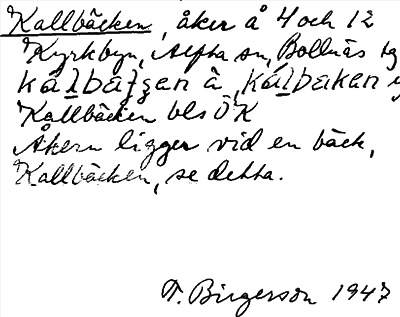 Kallbäcken, åker å 4 och 12
Kyrkbyn, Alfta sn, Bollnäs tg
Kallbäcken bls ÖK
Åkern ligger vid en bäck,
Kallbäcken, se detta.
F. Birgerson 1947